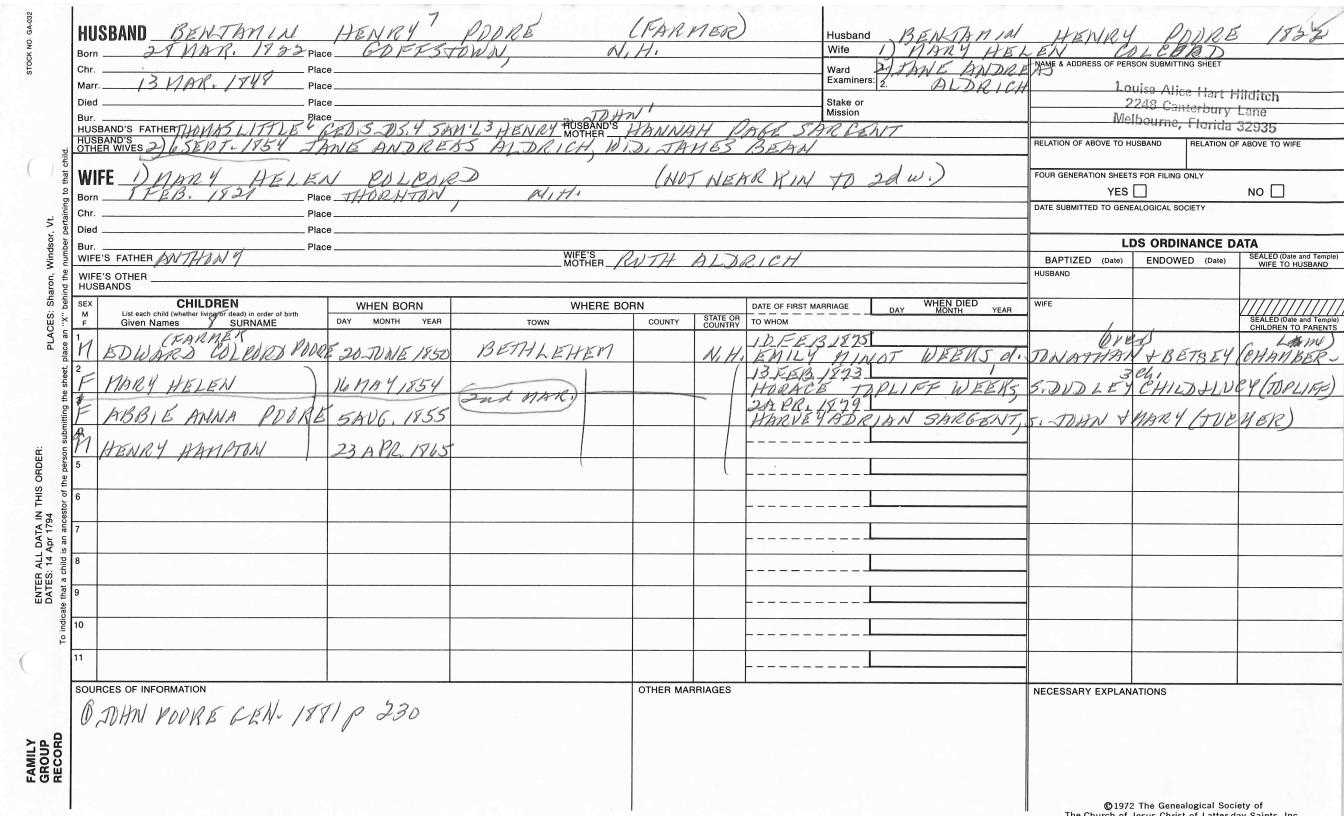 STOCK NO. GA-032
HUSBAND BENJAMIN HENRY 7 POORE (FARMER)
Born 28 MAR. 1822 Place GOFFSTOWN, N.H.
Chr. Place
Marr. 13 MAR. 1848 Place
Died Place
Bur. Place
HUSBAND'S FATHER THOMAS LITTLE 6 GEO.5 DS.4 SAM'L 3 HENRY 2 JOHN 1 HUSBAND'S MOTHER HANNAH PAGE SARGENT
HUSBAND'S OTHER WIVES 2) 6 SEPT. 1854 JANE ANDREAS ALDRICH, WID. JAMES BEAN
Husband BENJAMIN HENRY POORE 1822
Wife 1) MARY HELEN COLCORD
Ward Examiners: 2) JANE ANDREAS
2. ALDRICH
Stake or Mission
NAME & ADDRESS OF PERSON SUBMITTING SHEET
Louisa Alice Hart Hilditch
2248 Canterbury Lane
Melbourne, Florida 32935
RELATION OF ABOVE TO HUSBAND RELATION OF ABOVE TO WIFE
FOUR GENERATION SHEETS FOR FILING ONLY
YES NO
DATE SUBMITTED TO GENEALOGICAL SOCIETY
WIFE 1) MARY HELEN COLCORD (NOT NEAR KIN TO 2d w.)
Born 1 FEB. 1821 Place THORNTON, N.H.
Chr. Place
Died Place
Bur. Place
WIFE'S FATHER ANTHONY WIFE'S MOTHER RUTH ALDRICH
WIFE'S OTHER HUSBANDS
LDS ORDINANCE DATA
BAPTIZED (Date) ENDOWED (Date) SEALED (Date and Temple) WIFE TO HUSBAND
HUSBAND
WIFE
SEALED (Date and Temple) CHILDREN TO PARENTS
SEX M F
CHILDREN
List each child (whether living or dead) in order of birth
Given Names SURNAME
WHEN BORN
DAY MONTH YEAR
WHERE BORN
TOWN COUNTY STATE OR COUNTRY
DATE OF FIRST MARRIAGE
TO WHOM
WHEN DIED
DAY MONTH YEAR
1 M (FARMER EDWARD COLCORD POORE 20 JUNE 1850 BETHLEHEM N.H. 10 FEB 1875
EMILY MINOT WEEKS d. JONATHAN & BETSEY (CHAMBER-
2 F MARY HELEN 16 MAY 1854 2nd MAR. 13 FEB. 1873 3 ch.
HORACE TOPLIFF WEEKS, S. DUDLEY CHILD & LUCY (TOPLIFF)
F ABBIE ANNA POORE 5 AUG. 1855 2 APR. 1879
HARVEY ADRIAN SARGENT, S. JOHN & MARY (TUCKER)
M HENRY HAMPTON 23 APR. 1865
5
6
7
8
9
10
11
SOURCES OF INFORMATION
① JOHN POORE GEN. 1881 p 230
OTHER MARRIAGES
NECESSARY EXPLANATIONS
PLACES: Sharon, Windsor, Vt.
ENTER ALL DATA IN THIS ORDER:
DATES: 14 Apr 1794
To indicate that a child is an ancestor of the person submitting the sheet, place an "X" behind the number pertaining to that child.
FAMILY GROUP RECORD
©1972 The Genealogical Society of
The Church of Jesus Christ of Latter-day Saints, Inc.